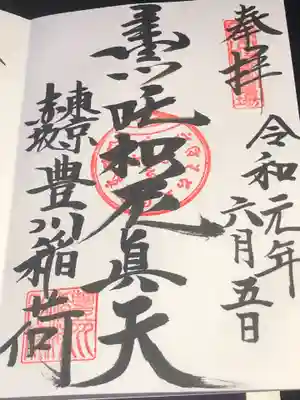 奉拝
令和元年
六月五日
吒枳尼眞天
東京
赤坂
豊川稲荷